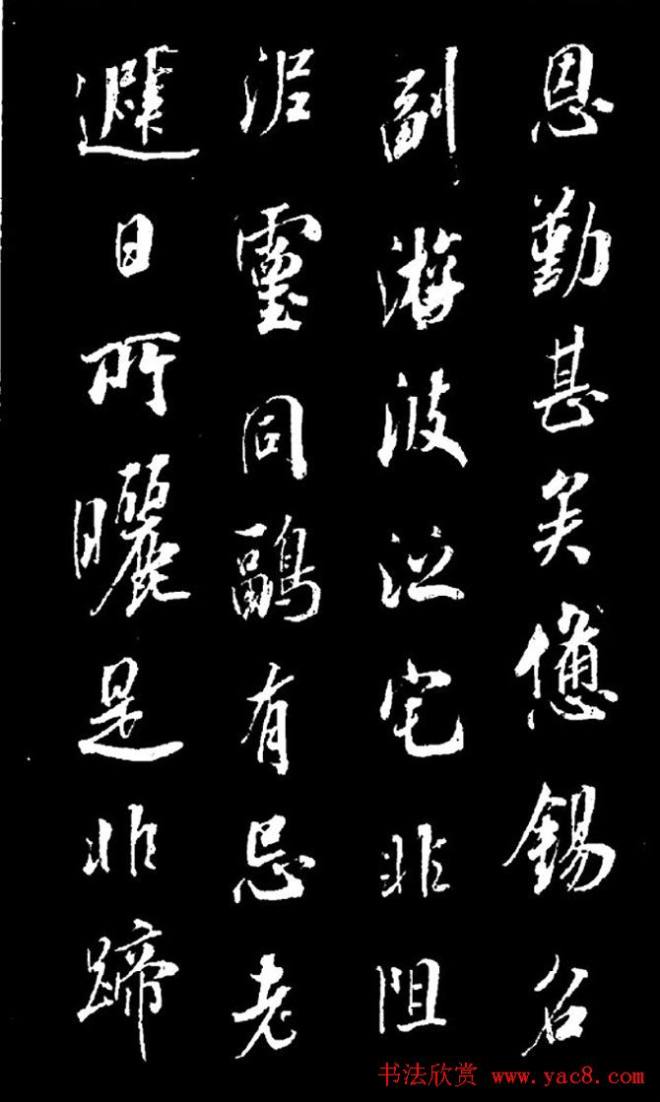 恩勤甚矣憊錫名
副游波泣宅非阻
靈同鷗有忌老
日所曬是非蹄
书法欣赏 www.yac8.com